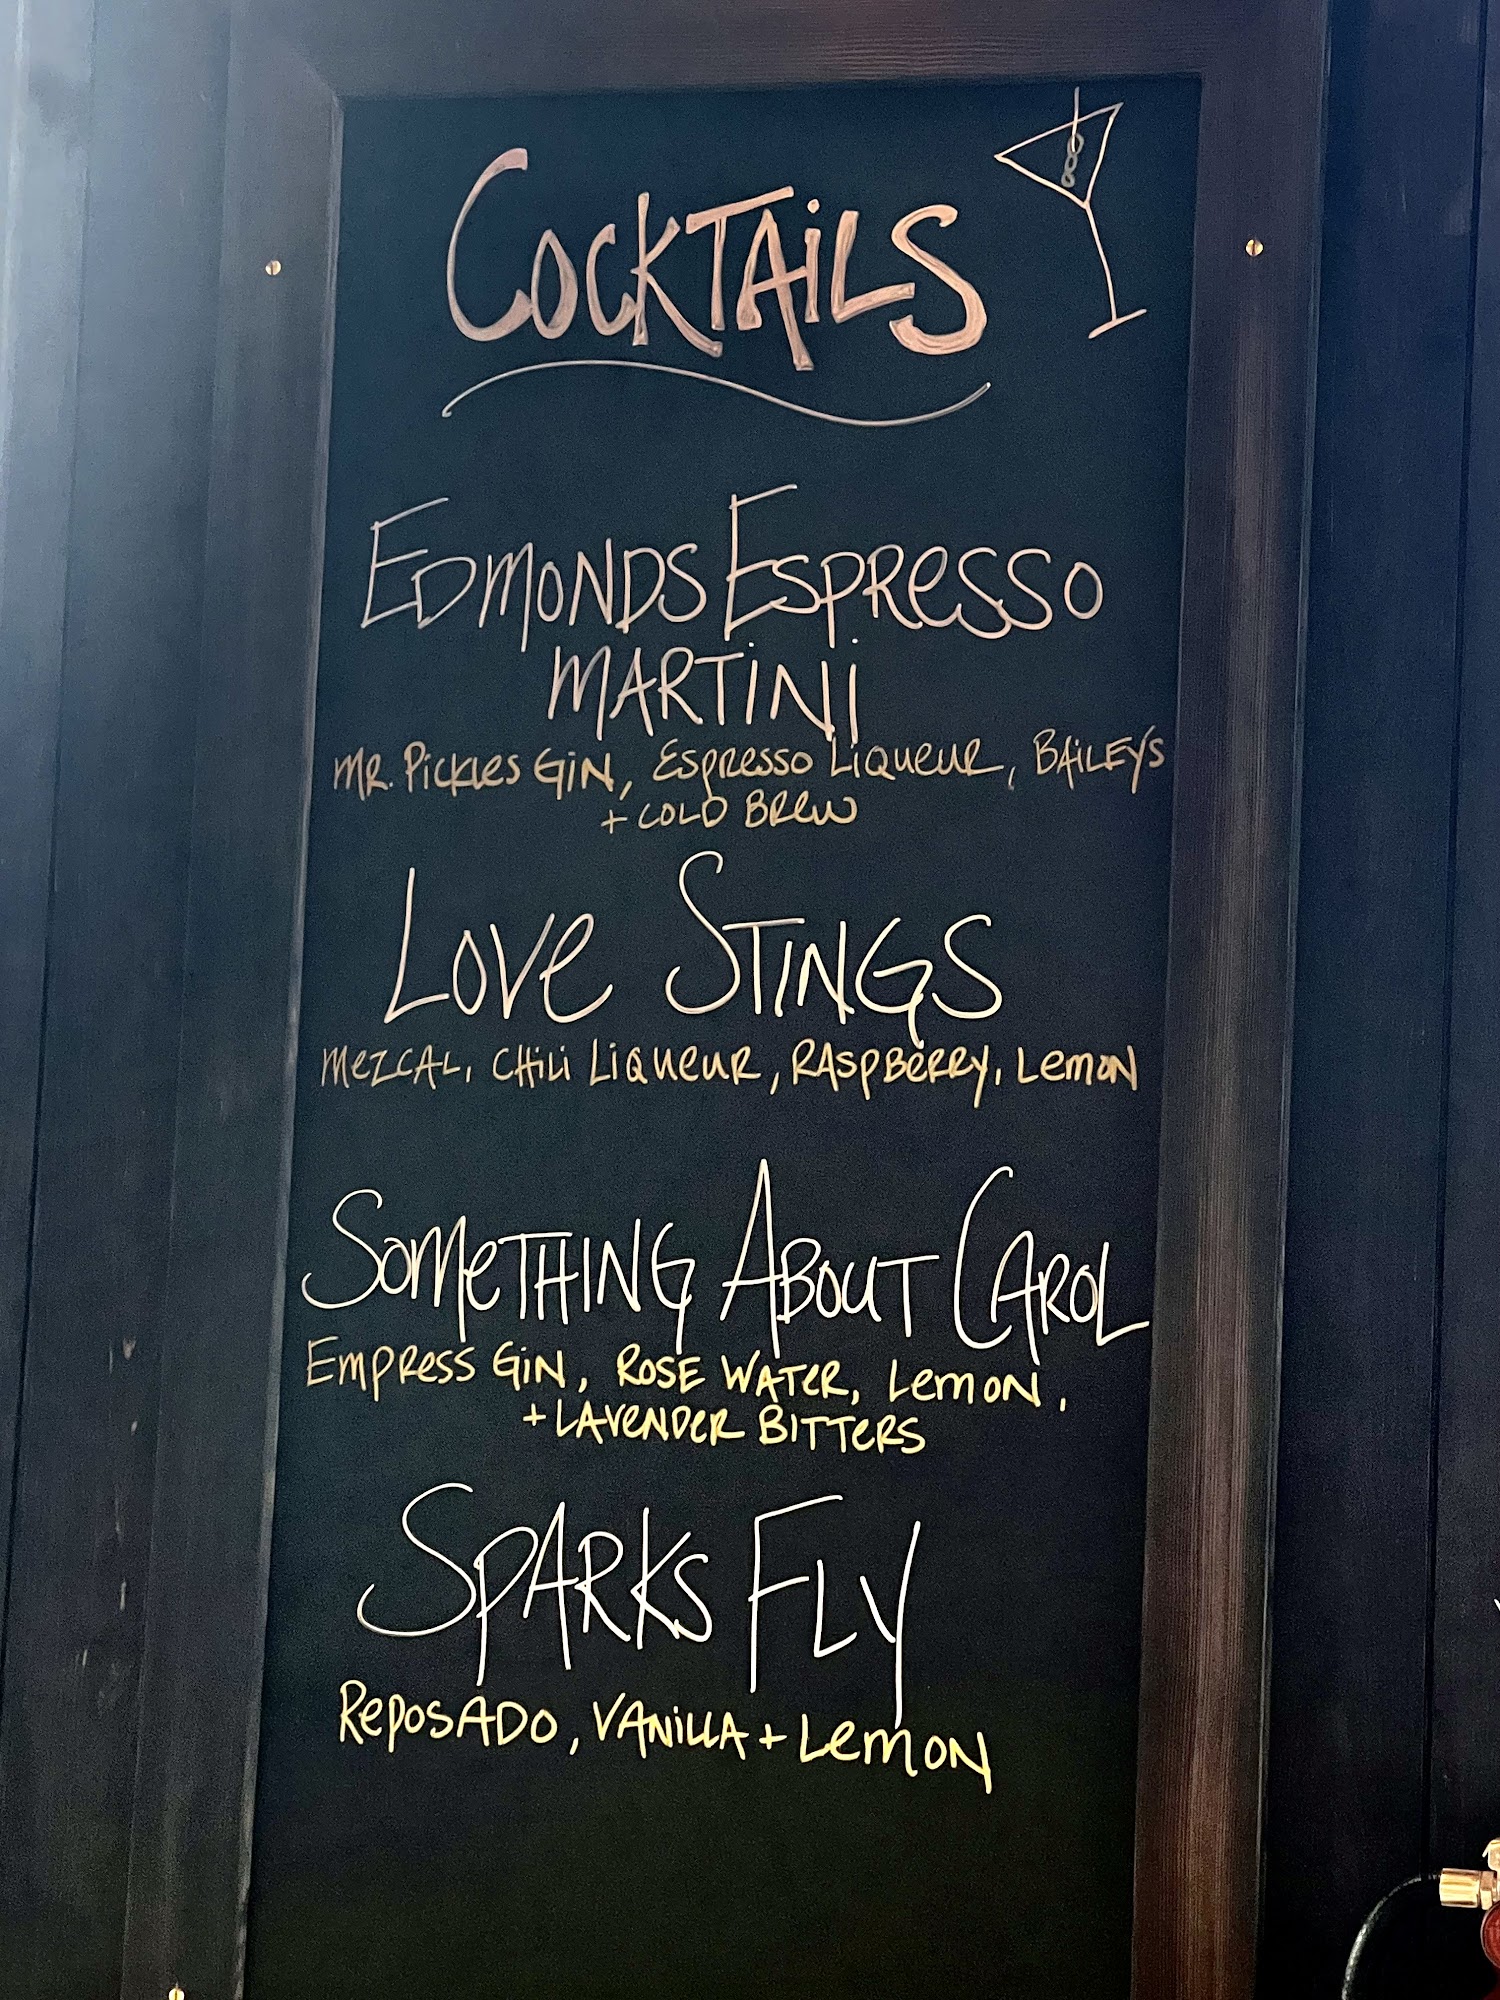 COCKTAiLS
EDMONDS ESPRESSO
MARTiNi
MR. PiCKLES GiN, ESPRESSO LiQUEUR, BAiLEY'S
+ COLD BREW
LOVE STINGS
MEZCAL, CHiLi LiQUEUR, RASPBERRY, LEMON
SOMETHING ABOUT CAROL
EMPRESS GiN, ROSE WATER, LEMON,
+ LAVENDER BITTERS
SPARKS FLY
REPOSADO, VANiLLA + LEMON